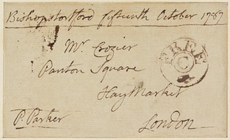 Bishopstortford fifteenth October 1787
Mr. Crozier
Panton Square
Hay Market
London
P Parker
FREE
C